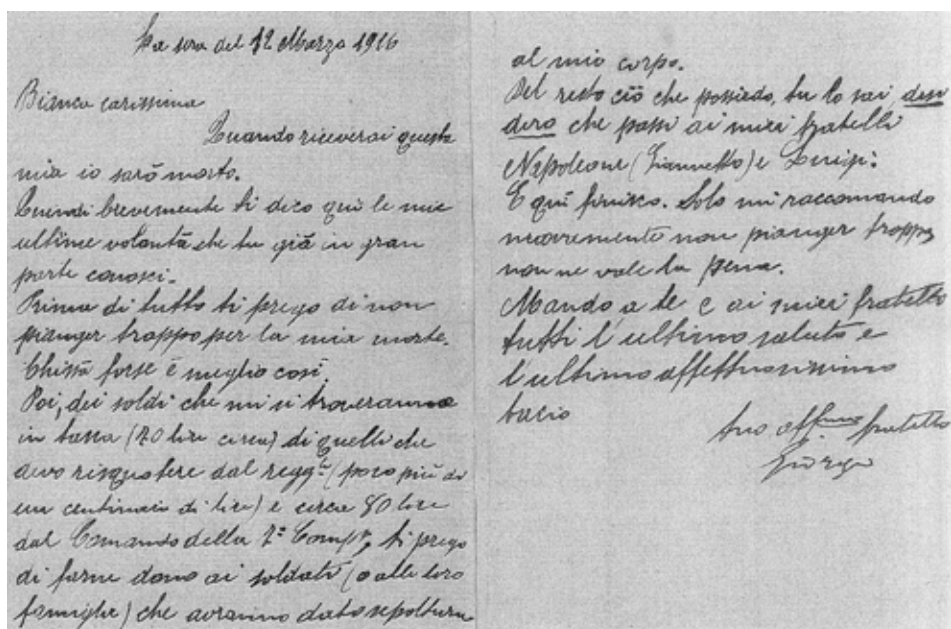 La sera del 12 Marzo 1916
Bianca carissima
Quando riceverai questa
mia io sarò morto.
Quindi brevemente ti dico qui le mie
ultime volontà che tu già in gran
parte conosci.
Prima di tutto ti prego di non
pianger troppo per la mia morte.
Chissà forse è meglio così.
Poi, dei soldi che mi si troveranno
in tasca (70 lire circa) di quelli che
devo risquotere dal regg.to (poco più di
un centinaio di lire) e circa 80 lire
dal Comando della 7ª Compª, ti prego
di farne dono ai soldati (o alle loro
famiglie) che avranno dato sepoltura
al mio corpo.
Del resto ciò che possiedo, tu lo sai, desi
dero che passi ai miei fratelli
Napoleone (Giannetto) e Luigi.
E qui finisco. Solo mi raccomando
nuovamente non pianger troppo,
non ne vale la pena.
Mando a te e ai miei fratelli
tutti l'ultimo saluto e
l'ultimo affettuosissimo
bacio
tuo aff.mo fratello
Giorgio